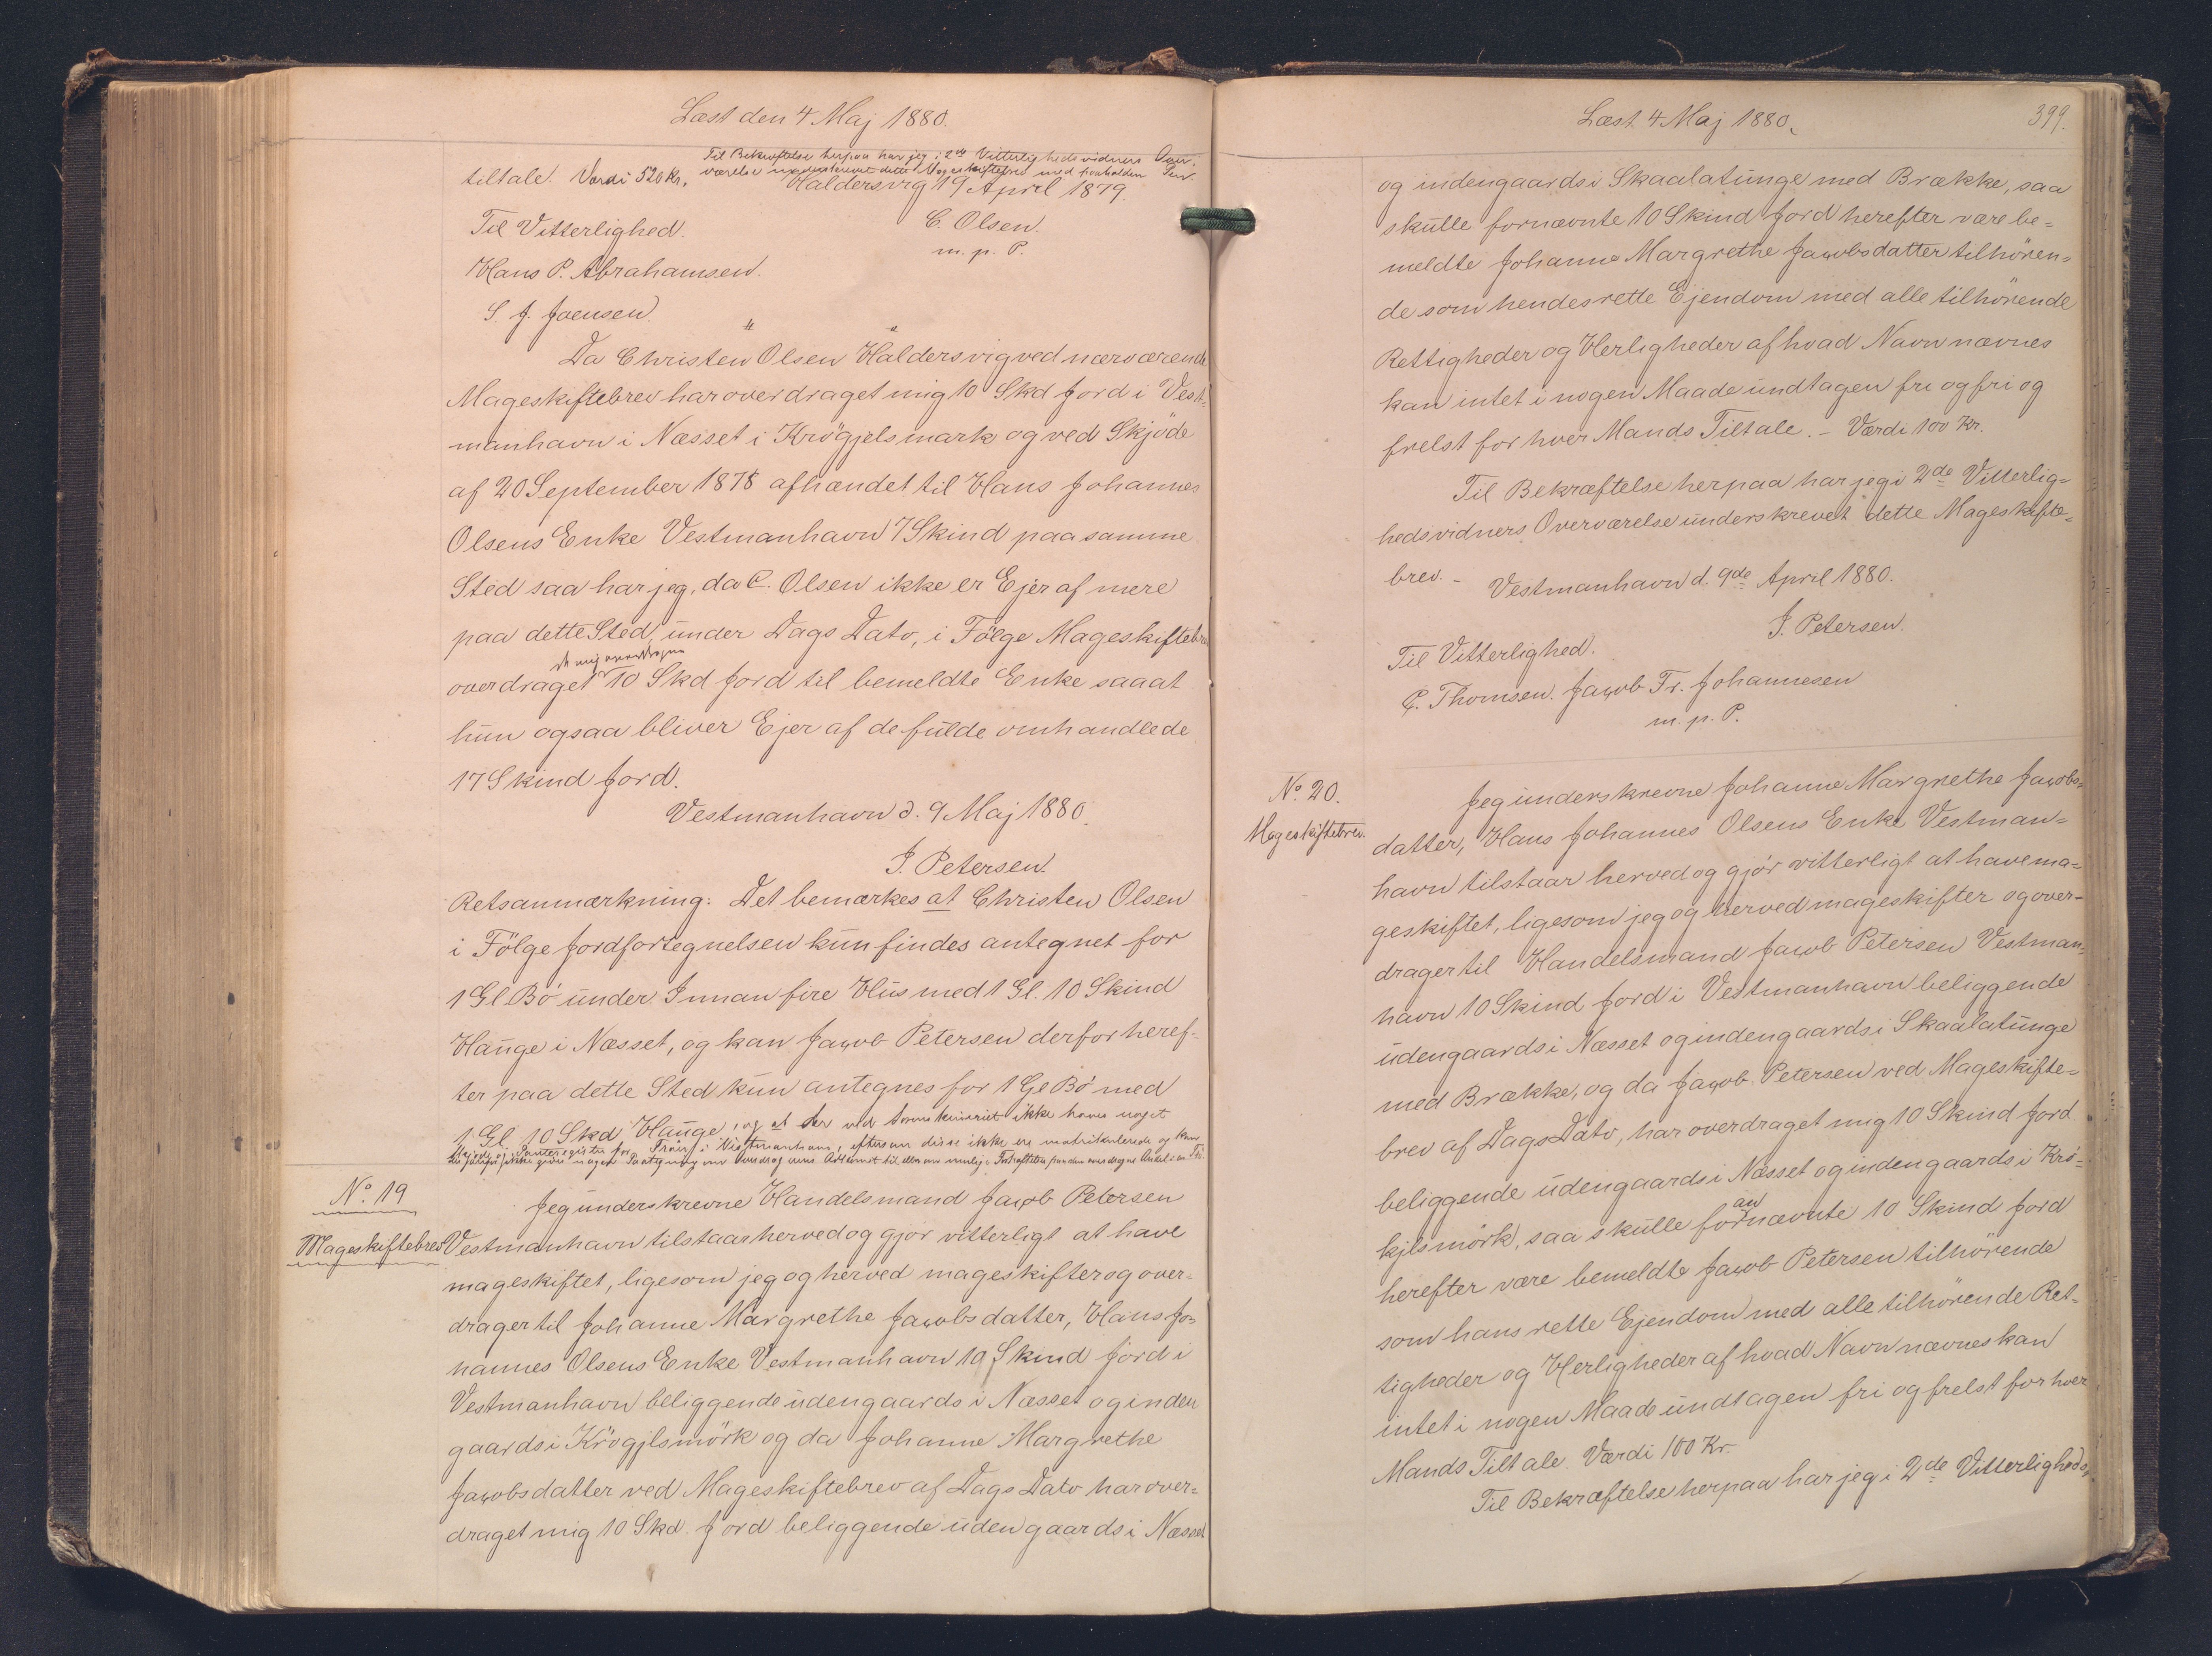 Læst den 4 Maj 1880.
Til Bekræftelse herpaa har jeg i 2de Vitterlighedsvidners Over-
værelse underskrevet dette Mageskiftebrev med paaholden Pen.
tiltale. Værdi 520 Kr.
Haldersvig 19 April 1879.
Til Vitterlighed.
C. Olsen.
m. p. P.
Hans P. Abrahamsen.
S. J. Joensen.
Da Christen Olsen Haldersvig ved nærværende
Mageskiftebrev har overdraget mig 10 Skd Jord i Vest-
manhavn i Næsset i Krögjelsmark og ved Skjöde
af 20 September 1878 afhændet til Hans Johannes
Olsens Enke Vestmanhavn 7 Skind paa samme
Sted saa har jeg, da C. Olsen ikke er Ejer af mere
paa dette Sted, under Dags Dato, i Fölge Mageskiftebrev
de mig overdragne
overdraget 10 Skd Jord til bemeldte Enke saaat
hun ogsaa bliver Ejer af de fulde omhandlede
17 Skind Jord.
Vestmanhavn d. 9 Maj 1880.
J. Petersen.
Retsanmærkning: Det bemærkes at Christen Olsen
i Fölge Jordfortegnelsen kun findes antegnet for
1 Gl. Bö under Innan fire Hus med 1 Gl. 10 Skind
Hauge i Næsset, og kan Jacob Petersen derfor heref-
ter paa dette Sted kun antegnes for 1 Gl Bö med
1 Gl. 10 Skd Hauge, og at der ved Sorenskriveriet ikke haves noget
Skjöde og Panteregister for Traðir i Vestmanhavn, eftersom disse ikke ere matrikulerede og kan
der derfor ikke gives nogen Paategning om
No. 19
Mageskiftebrev
Jeg underskrevne Handelsmand Jacob Petersen
Vestmanhavn tilstaar herved og gjör vitterligt at have
mageskiftet, ligesom jeg og herved mageskifter og over-
drager til Johanne Margrethe Jacobsdatter, Hans Jo-
hannes Olsens Enke Vestmanhavn 10 Skind Jord i
Vestmanhavn beliggende udengaards i Næsset og inden
gaards i Krögjlsmörk og da Johanne Margrethe
Jacobsdatter ved Mageskiftebrev af Dags Dato har over-
draget mig 10 Skd. Jord beliggende udengaards i Næsset
Læst 4 Maj 1880.
399.
og indengaards i Skaalatunge med Brække, saa
skulle fornævnte 10 Skind Jord herefter være be-
meldte Johanne Margrethe Jacobsdatter tilhören-
de som hendes rette Ejendom med alle tilhörende
Rettigheder og Herligheder af hvad Navn nævnes
kan intet i nogen Maade undtagen fri og fri og
frelst for hver Mands Tiltale. - Værdi 100 Kr.
Til Bekræftelse herpaa har jeg i 2de Vitterlig-
hedsvidners Overværelse underskrevet dette Mageskifte-
brev. - Vestmanhavn d. 9de April 1880.
J. Petersen.
Til Vitterlighed.
C. Thomsen. Jacob Fr. Johannesen
m. p. P.
No. 20.
Mageskiftebrev.
Jeg underskrevne Johanne Margrethe Jacobs-
datter, Hans Johannes Olsens Enke Vestman-
havn tilstaar herved og gjör vitterligt at have ma-
geskiftet, ligesom jeg og herved mageskifter og over-
drager til Handelsmand Jacob Petersen Vestman-
havn 10 Skind Jord i Vestmanhavn beliggende
udengaards i Næsset og indengaards i Skaalatunge
med Brække, og da Jacob Petersen ved Mageskifte-
brev af Dags Dato, har overdraget mig 10 Skind Jord
beliggende udengaards i Næsset og indengaards i Krö-
kjlsmörk, saa skulle fornævnte 10 Skind Jord
an
herefter være bemeldte Jacob Petersen tilhörende
som hans rette Ejendom med alle tilhörende Ret-
tigheder og Herligheder af hvad Navn nævnes kan
intet i nogen Maade undtagen fri og frelst for hver
Mands Tiltale. Værdi 100 Kr.
Til Bekræftelse herpaa har jeg i 2de Vitterligheds-